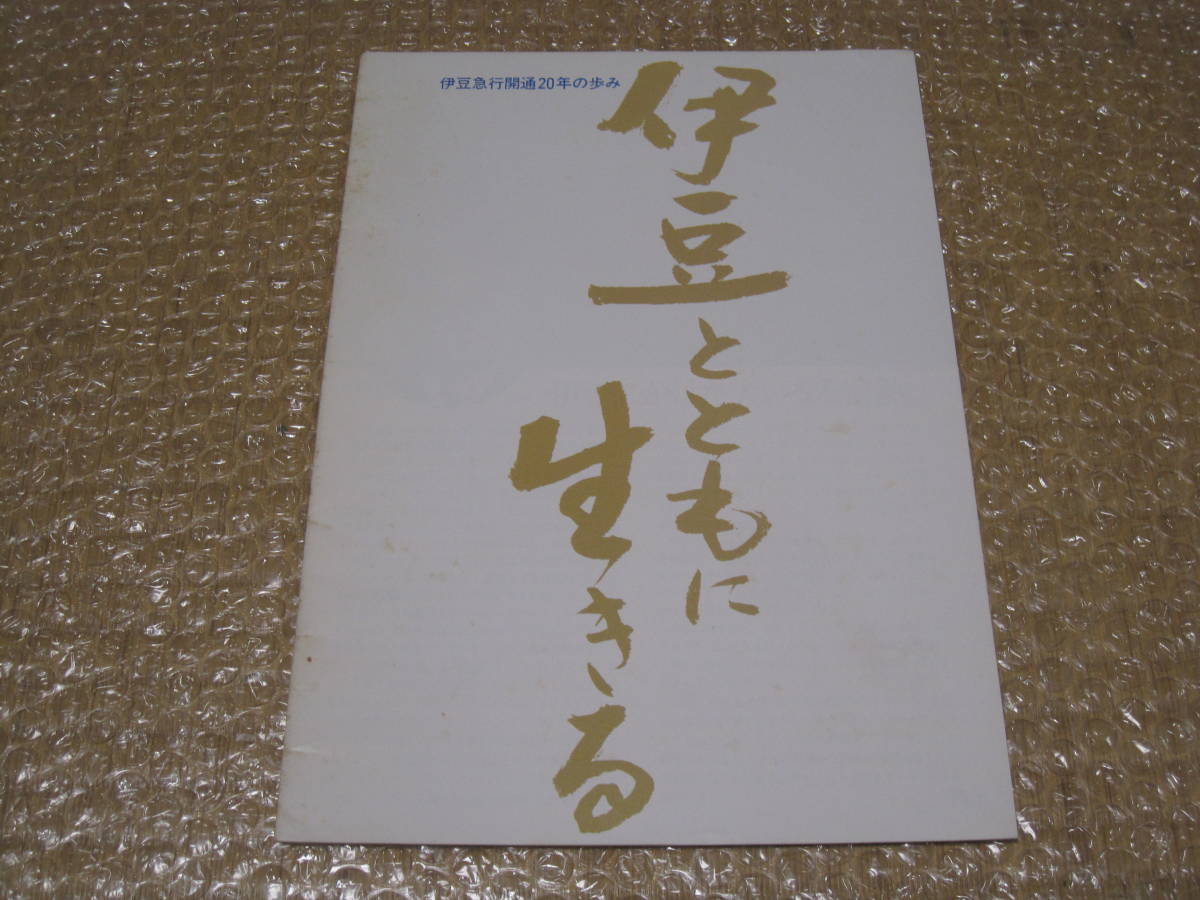 伊豆急行開通20年の歩み
伊豆とともに
生きる